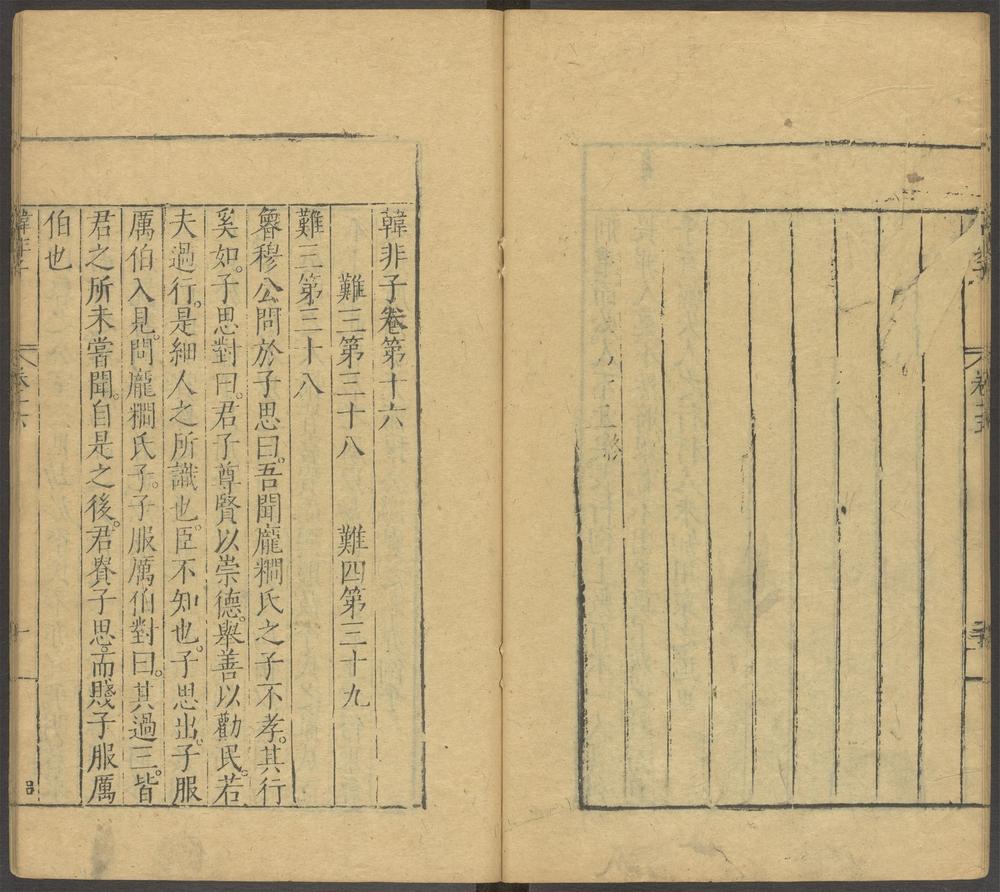 韓非子卷第十六
難三第三十八　難四第三十九
難三第三十八
魯穆公問於子思曰。吾聞龐𥼝氏之子不孝。其行
奚如。子思對曰。君子尊賢以崇德。舉善以勸民。若
夫過行。是細人之所識也。臣不知也。子思出。子服
厲伯入見。問龐𥼝氏子。子服厲伯對曰。其過三。皆
君之所未嘗聞。自是之後。君貴子思。而賤子服厲
伯也
韓非子
卷十六
一
呂